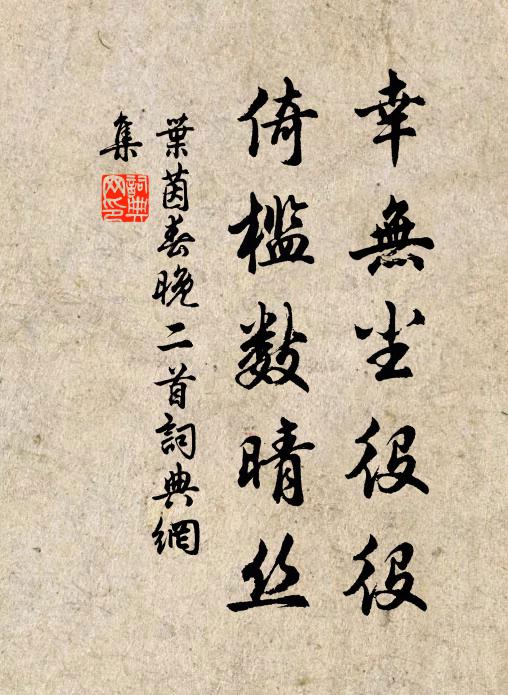 幸無尘役役
倚檻数晴丝
葉茵春晚二首詞典網
集
詞典
网印